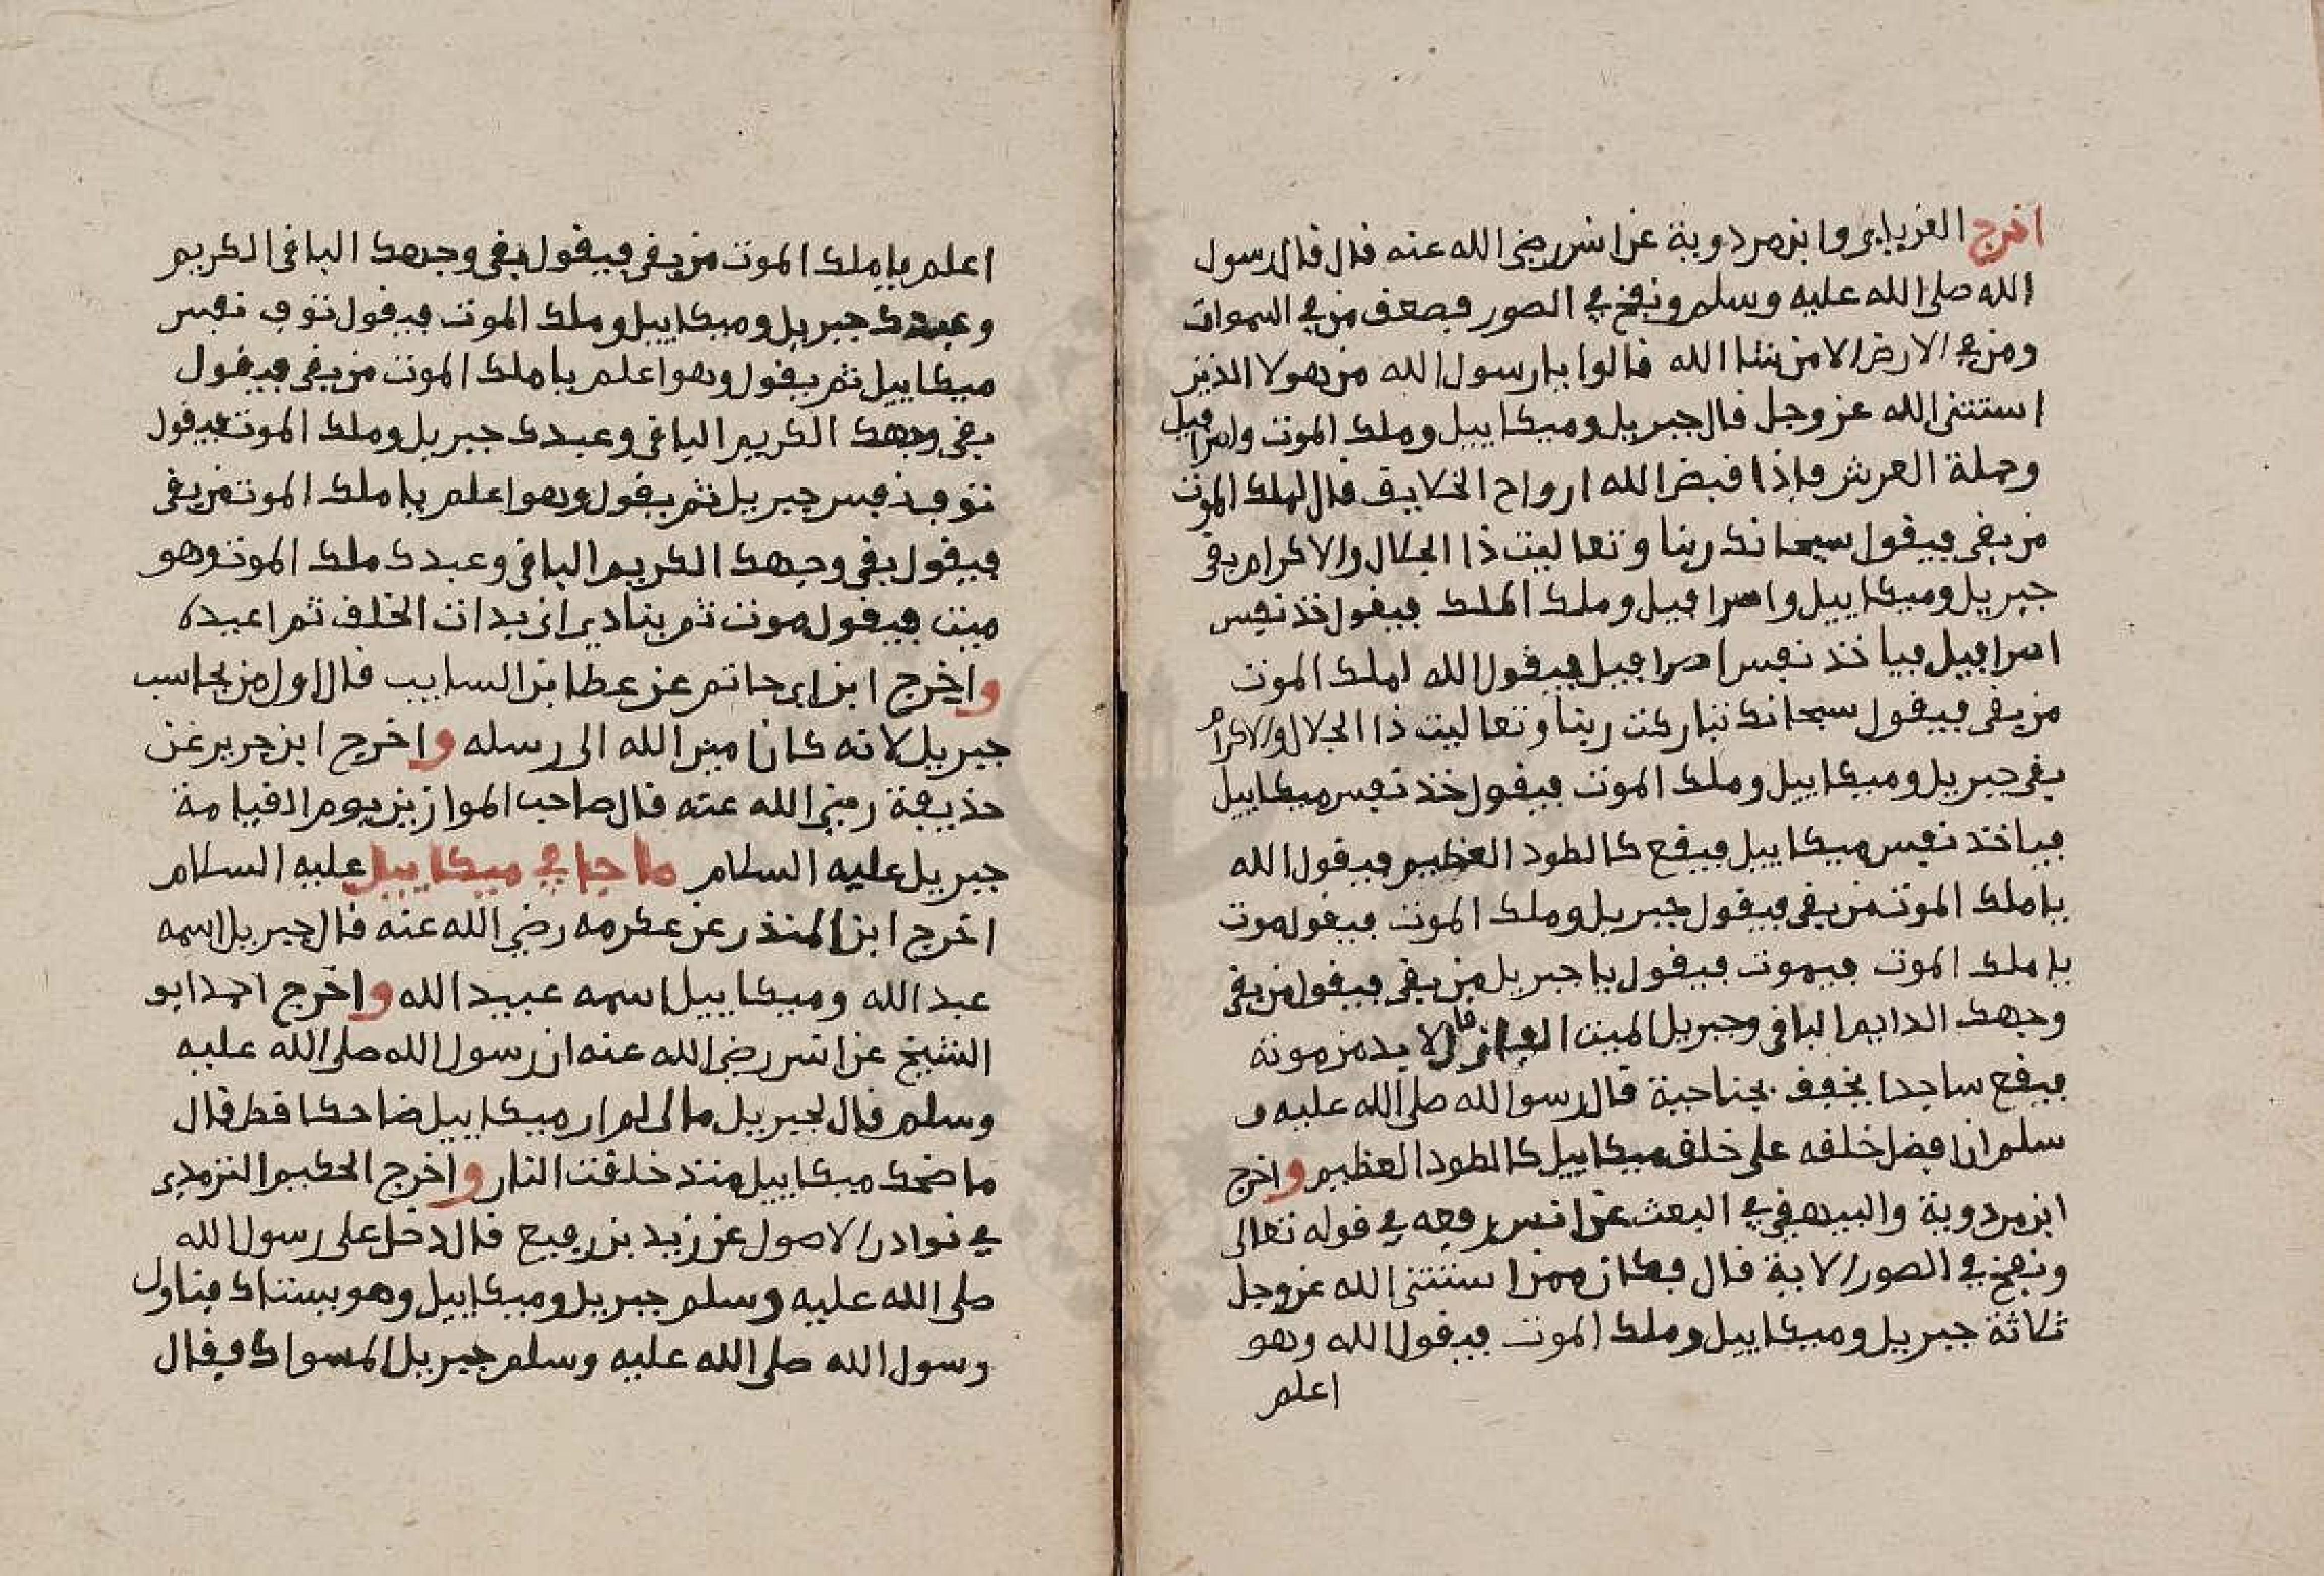 اخرج الفريابي وابن مردوية عن انس رضي الله عنه قال قال رسول
الله صلى الله عليه وسلم ونفخ في الصور فصعق من في السموات
ومن في الارض الا من شا الله قالوا يا رسول الله من هولا الذين
استثنى الله عز وجل قال جبريل وميكاييل وملك الموت واسرافيل
وحملة العرش فاذا قبض الله ارواح الخلايق قال لملك الموت
من بقي فيقول سبحانك ربنا وتعاليت ذا الجلال والاكرام بقي
جبريل وميكاييل واسرافيل وملك الملك فيقول خذ نفس
اسرافيل فياخذ نفس اسرافيل فيقول الله لملك الموت
من بقي فيقول سبحانك تباركت ربنا وتعاليت ذا الجلال والاكرام
بقي جبريل وميكاييل وملك الموت فيقول خذ نفس ميكاييل
فياخذ نفس ميكاييل فيقع كالطود العظيم فيقول الله
يا ملك الموت من بقي فيقول جبريل وملك الموت فيقول موت
يا ملك الموت فيموت فيقول يا جبريل من بقي فيقول من بقي
وجهك الدايم الباقي وجبريل الميت الفاني قال لا بد من موته
فيقع ساجدا يخفق بجناحية قال رسول الله صلى الله عليه و
سلم ان افضل خلقه على خلق ميكاييل كالطود العظيم واخرج
ابن مردوية والبيهقي في البعث عن انس رفعه في قوله تعالى
ونفخ في الصور الاية قال فكان ممن استثنى الله عز وجل
ثلاثة جبريل وميكاييل وملك الموت فيقول الله وهو
اعلم
اعلم يا ملك الموت من بقي فيقول بقي وجهك الباقي الكريم
وعبدك جبريل وميكاييل وملك الموت فيقول توف نفس
ميكاييل ثم يقول وهو اعلم يا ملك الموت من بقي فيقول
بقي وجهك الكريم الباقي وعبدك جبريل وملك الموت فيقول
توف نفس جبريل ثم يقول وهو اعلم يا ملك الموت من بقي
فيقول بقي وجهك الكريم الباقي وعبدك ملك الموت وهو
ميت فيقول موت ثم ينادي اني بدات الخلق ثم اعيده
واخرج ابن ابي حاتم عن عطا بن السايب قال اول من يحاسب
جبريل لانه كان امين الله الى رسله واخرج ابن جرير عن
حذيفة رضي الله عنه قال صاحب الموازين يوم القيامة
جبريل عليه السلام ما جا في ميكاييل عليه السلام
اخرج ابن المنذر عن عكرمه رضي الله عنه قال جبريل اسمه
عبد الله وميكاييل اسمه عبيد الله واخرج احمد ابو
الشيخ عن انس رضي الله عنه ان رسول الله صلى الله عليه
وسلم قال لجبريل مالي لم ار ميكاييل ضاحكا قط قال
ما ضحك ميكاييل منذ خلقت النار واخرج الحكيم الترمدي
في نوادر الاصول عن زيد بن رفيع قال دخل على رسول الله
صلى الله عليه وسلم جبريل وميكاييل وهو يستاك فناول
رسول الله صلى الله عليه وسلم جبريل المسواك فقال